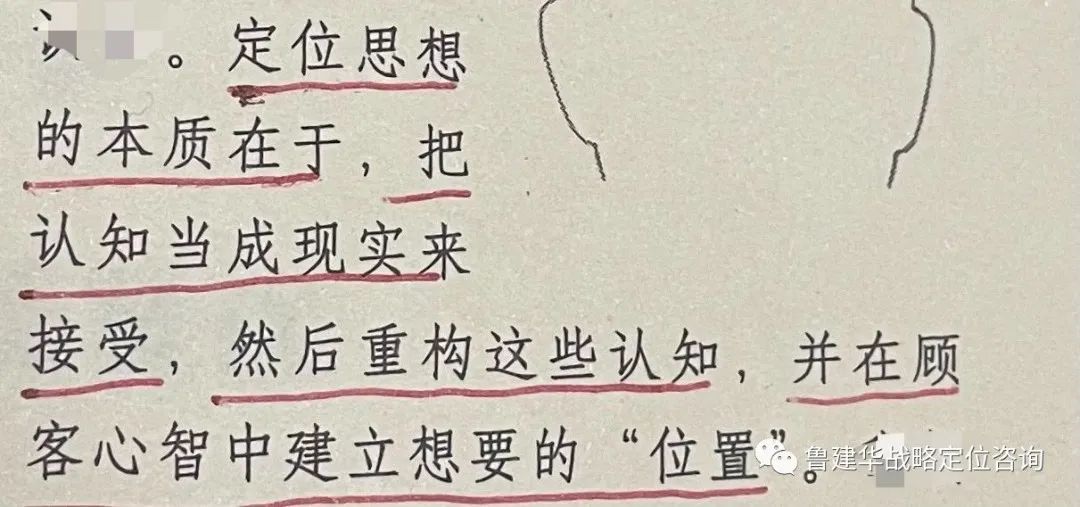 。定位思想
的本质在于，把
认知当成现实来
接受，然后重构这些认知，并在顾
客心智中建立想要的“位置”。
鲁建华战略定位咨询